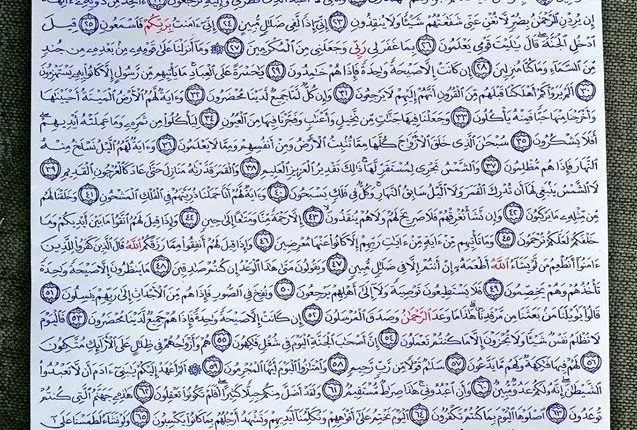 إِن يُرِدْنِ الرَّحْمَٰنُ بِضُرٍّ لَّا تُغْنِ عَنِّي شَفَٰعَتُهُمْ شَيْـًٔا وَلَا يُنقِذُونِ ٢٣ إِنِّي إِذًا لَّفِي ضَلَٰلٍ مُّبِينٍ ٢٤ إِنِّي ءَامَنتُ بِرَبِّكُمْ فَاسْمَعُونِ ٢٥ قِيلَ
ادْخُلِ الْجَنَّةَ قَالَ يَٰلَيْتَ قَوْمِي يَعْلَمُونَ ٢٦ بِمَا غَفَرَ لِي رَبِّي وَجَعَلَنِي مِنَ الْمُكْرَمِينَ ٢٧ وَمَا أَنزَلْنَا عَلَىٰ قَوْمِهِ مِن بَعْدِهِ مِن جُندٍ
مِّنَ السَّمَاءِ وَمَا كُنَّا مُنزِلِينَ ٢٨ إِن كَانَتْ إِلَّا صَيْحَةً وَٰحِدَةً فَإِذَا هُمْ خَٰمِدُونَ ٢٩ يَٰحَسْرَةً عَلَى الْعِبَادِ مَا يَأْتِيهِم مِّن رَّسُولٍ إِلَّا كَانُوا بِهِ يَسْتَهْزِءُونَ
٣٠ أَلَمْ يَرَوْا كَمْ أَهْلَكْنَا قَبْلَهُم مِّنَ الْقُرُونِ أَنَّهُمْ إِلَيْهِمْ لَا يَرْجِعُونَ ٣١ وَإِن كُلٌّ لَّمَّا جَمِيعٌ لَّدَيْنَا مُحْضَرُونَ ٣٢ وَءَايَةٌ لَّهُمُ الْأَرْضُ الْمَيْتَةُ أَحْيَيْنَٰهَا
وَأَخْرَجْنَا مِنْهَا حَبًّا فَمِنْهُ يَأْكُلُونَ ٣٣ وَجَعَلْنَا فِيهَا جَنَّٰتٍ مِّن نَّخِيلٍ وَأَعْنَٰبٍ وَفَجَّرْنَا فِيهَا مِنَ الْعُيُونِ ٣٤ لِيَأْكُلُوا مِن ثَمَرِهِ وَمَا عَمِلَتْهُ أَيْدِيهِمْ
أَفَلَا يَشْكُرُونَ ٣٥ سُبْحَٰنَ الَّذِي خَلَقَ الْأَزْوَٰجَ كُلَّهَا مِمَّا تُنبِتُ الْأَرْضُ وَمِنْ أَنفُسِهِمْ وَمِمَّا لَا يَعْلَمُونَ ٣٦ وَءَايَةٌ لَّهُمُ الَّيْلُ نَسْلَخُ مِنْهُ
النَّهَارَ فَإِذَا هُم مُّظْلِمُونَ ٣٧ وَالشَّمْسُ تَجْرِي لِمُسْتَقَرٍّ لَّهَا ذَٰلِكَ تَقْدِيرُ الْعَزِيزِ الْعَلِيمِ ٣٨ وَالْقَمَرَ قَدَّرْنَٰهُ مَنَازِلَ حَتَّىٰ عَادَ كَالْعُرْجُونِ الْقَدِيمِ ٣٩
لَا الشَّمْسُ يَنبَغِي لَهَا أَن تُدْرِكَ الْقَمَرَ وَلَا الَّيْلُ سَابِقُ النَّهَارِ وَكُلٌّ فِي فَلَكٍ يَسْبَحُونَ ٤٠ وَءَايَةٌ لَّهُمْ أَنَّا حَمَلْنَا ذُرِّيَّتَهُمْ فِي الْفُلْكِ الْمَشْحُونِ ٤١ وَخَلَقْنَا لَهُم
مِّن مِّثْلِهِ مَا يَرْكَبُونَ ٤٢ وَإِن نَّشَأْ نُغْرِقْهُمْ فَلَا صَرِيخَ لَهُمْ وَلَا هُمْ يُنقَذُونَ ٤٣ إِلَّا رَحْمَةً مِّنَّا وَمَتَٰعًا إِلَىٰ حِينٍ ٤٤ وَإِذَا قِيلَ لَهُمُ اتَّقُوا مَا بَيْنَ أَيْدِيكُمْ وَمَا
خَلْفَكُمْ لَعَلَّكُمْ تُرْحَمُونَ ٤٥ وَمَا تَأْتِيهِم مِّنْ ءَايَةٍ مِّنْ ءَايَٰتِ رَبِّهِمْ إِلَّا كَانُوا عَنْهَا مُعْرِضِينَ ٤٦ وَإِذَا قِيلَ لَهُمْ أَنفِقُوا مِمَّا رَزَقَكُمُ اللَّهُ قَالَ الَّذِينَ كَفَرُوا لِلَّذِينَ
ءَامَنُوا أَنُطْعِمُ مَن لَّوْ يَشَاءُ اللَّهُ أَطْعَمَهُ إِنْ أَنتُمْ إِلَّا فِي ضَلَٰلٍ مُّبِينٍ ٤٧ وَيَقُولُونَ مَتَىٰ هَٰذَا الْوَعْدُ إِن كُنتُمْ صَٰدِقِينَ ٤٨ مَا يَنظُرُونَ إِلَّا صَيْحَةً وَٰحِدَةً
تَأْخُذُهُمْ وَهُمْ يَخِصِّمُونَ ٤٩ فَلَا يَسْتَطِيعُونَ تَوْصِيَةً وَلَا إِلَىٰ أَهْلِهِمْ يَرْجِعُونَ ٥٠ وَنُفِخَ فِي الصُّورِ فَإِذَا هُم مِّنَ الْأَجْدَاثِ إِلَىٰ رَبِّهِمْ يَنسِلُونَ ٥١
قَالُوا يَٰوَيْلَنَا مَن بَعَثَنَا مِن مَّرْقَدِنَا هَٰذَا مَا وَعَدَ الرَّحْمَٰنُ وَصَدَقَ الْمُرْسَلُونَ ٥٢ إِن كَانَتْ إِلَّا صَيْحَةً وَٰحِدَةً فَإِذَا هُمْ جَمِيعٌ لَّدَيْنَا مُحْضَرُونَ ٥٣ فَالْيَوْمَ
لَا تُظْلَمُ نَفْسٌ شَيْـًٔا وَلَا تُجْزَوْنَ إِلَّا مَا كُنتُمْ تَعْمَلُونَ ٥٤ إِنَّ أَصْحَٰبَ الْجَنَّةِ الْيَوْمَ فِي شُغُلٍ فَٰكِهُونَ ٥٥ هُمْ وَأَزْوَٰجُهُمْ فِي ظِلَٰلٍ عَلَى الْأَرَائِكِ مُتَّكِـُٔونَ
٥٦ لَهُمْ فِيهَا فَٰكِهَةٌ وَلَهُم مَّا يَدَّعُونَ ٥٧ سَلَٰمٌ قَوْلًا مِّن رَّبٍّ رَّحِيمٍ ٥٨ وَامْتَٰزُوا الْيَوْمَ أَيُّهَا الْمُجْرِمُونَ ٥٩ أَلَمْ أَعْهَدْ إِلَيْكُمْ يَٰبَنِي ءَادَمَ أَن لَّا تَعْبُدُوا
الشَّيْطَٰنَ إِنَّهُ لَكُمْ عَدُوٌّ مُّبِينٌ ٦٠ وَأَنِ اعْبُدُونِي هَٰذَا صِرَٰطٌ مُّسْتَقِيمٌ ٦١ وَلَقَدْ أَضَلَّ مِنكُمْ جِبِلًّا كَثِيرًا أَفَلَمْ تَكُونُوا تَعْقِلُونَ ٦٢ هَٰذِهِ جَهَنَّمُ الَّتِي كُنتُمْ
تُوعَدُونَ ٦٣ اصْلَوْهَا الْيَوْمَ بِمَا كُنتُمْ تَكْفُرُونَ ٦٤ الْيَوْمَ نَخْتِمُ عَلَىٰ أَفْوَٰهِهِمْ وَتُكَلِّمُنَا أَيْدِيهِمْ وَتَشْهَدُ أَرْجُلُهُم بِمَا كَانُوا يَكْسِبُونَ ٦٥ وَلَوْ نَشَاءُ لَطَمَسْنَا عَلَىٰ